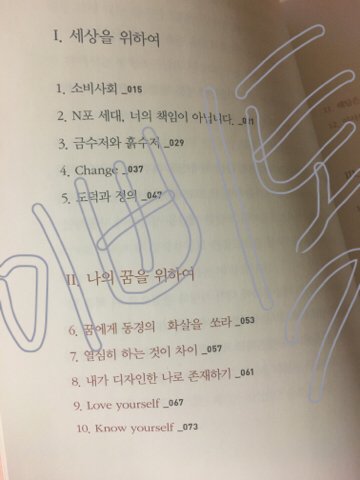 I. 세상을 위하여
1. 소비사회 _015
2. N포 세대, 너의 책임이 아닙니다. _021
3. 금수저와 흙수저 _029
4. Change _037
5. 도덕과 정의 _047
II. 나의 꿈을 위하여
6. 꿈에게 동경의 화살을 쏘라 _053
7. 열심히 하는 것이 차이 _057
8. 내가 디자인한 나로 존재하기 _061
9. Love yourself _067
10. Know yourself _073